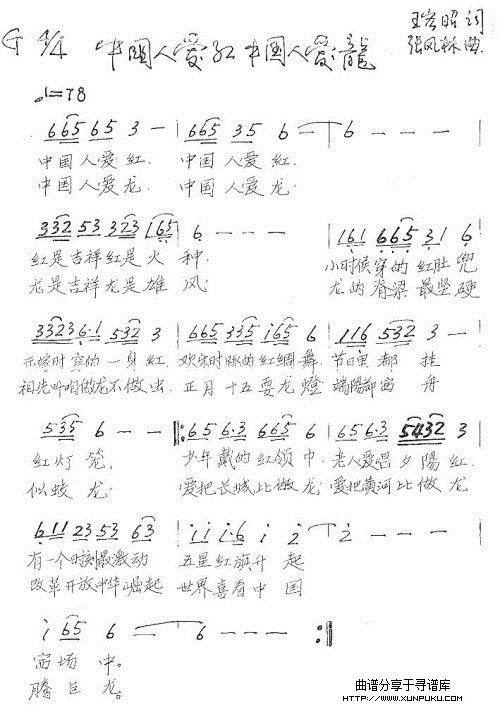 G 4/4 中國人愛红 中國人愛龍
张凤林曲
♩=78
6 6 5 6 5 3 — | 6 6 5 3 5 6 — | 6 — — —
中国人爱红. 中国人爱红.
中国人爱龙. 中国人爱龙.
3 3 2 5 3 3 2 3 1 6 5 | 6 — — — | 1 6 1 6 6 5 3 1 6
红是吉祥红是火种. 小时候穿的红肚兜
龙是吉祥龙是雄风. 龙的脊梁最坚硬
3 3 2 3 6·1 5 3 2 3 | 6 6 5 3 3 5 i 6 5 6 | 1 1 6 5 3 2 3 —
时穿的一身红. 欢乐时跳的红绸舞 节日里都挂
祖先叫咱做龙不做虫. 正月十五耍龙燈 端陽都 舟
5 3 5 6 — — ‖: 6 5 6·3 6 6 5 6 | 6 5 6·3 5 4 3 2 3
红灯笼. 少年戴的红领巾. 老人爱唱夕陽红.
似蛟龙. 爱把长城比做龙 爱把黄河比做龙
6 1 1 2 3 5 3 6 3 | i i i·6 i 2 — | 2 — — —
有一个时刻最激动 五星红旗升起
改革开放中华崛起 世界喜看中国
i 6 5 6 — 6 — — — :‖
场中。
腾巨龙。
曲谱分享于寻谱库
HTTP://WWW.XUNPUKU.COM